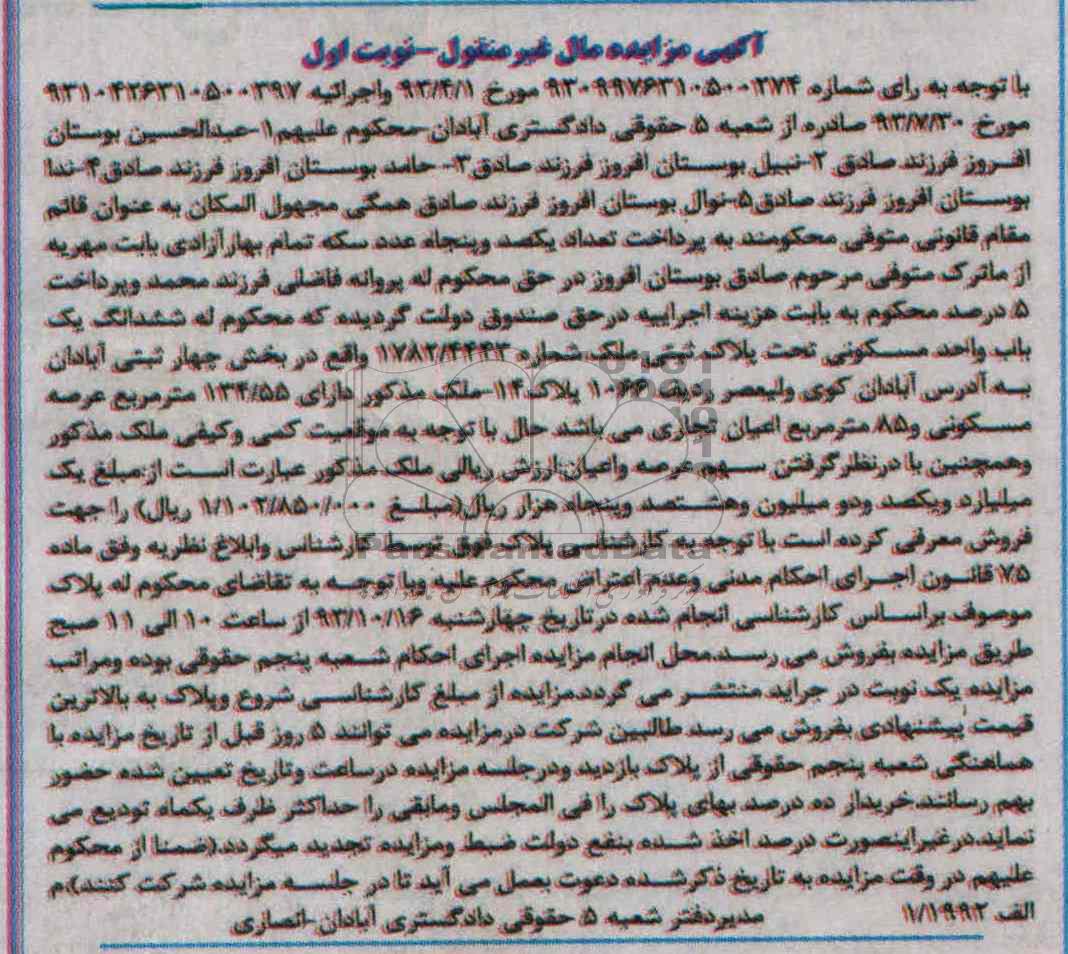 آگهی مزایده مال غیر منقول-نوبت اول
با توجه به رای شماره ۹۳۰۹۹۷۶۳۱۰۵۰۰۲۷۴ مورخ ۹۳/۴/۱ واجرائیه ۹۳۱۰۴۲۶۳۱۰۵۰۰۳۹۷
مورخ ۹۳/۷/۳۰ صادره از شعبه ۵ حقوقی دادگستری آبادان-محکوم علیهم۱-عبدالحسین بوستان
افروز فرزند صادق ۲-نبیل بوستان افروز فرزند صادق۳- حامد بوستان افروز فرزند صادق۴-ندا
بوستان افروز فرزند صادق۵-نوال بوستان افروز فرزند صادق همگی مجهول المکان به عنوان قائم
مقام قانونی متوفی محکومند به پرداخت تعداد یکصد وپنجاه عدد سکه تمام بهارآزادی بابت مهریه
از ماترک متوفی مرحوم صادق بوستان افروز در حق محکوم له پروانه فاضلی فرزند محمد وپرداخت
۵ درصد محکوم به بابت هزینه اجراییه درحق صندوق دولت گردیده که محکوم له ششدانگ یک
باب واحد مسکونی تحت پلاک ثبتی ملک شماره ۱۷۸۲/۴۴۴۳ واقع در بخش چهار ثبتی آبادان
به آدرس آبادان کوی ولیعصر ردیف ۱۰۶۶ پلاک۱۴-ملک مذکور دارای ۱۳۴/۵۵ مترمربع عرصه
مسکونی و۸۵ مترمربع اعیان تجاری می باشد حال با توجه به موقعیت کمی وکیفی ملک مذکور
وهمچنین با درنظرگرفتن سهم عرصه واعیان،ارزش ریالی ملک مذکور عبارت است از:مبلغ یک
میلیارد ویکصد ودو میلیون وهشتصد وپنجاه هزار ریال(مبلغ ۱/۱۰۲/۸۵۰/۰۰۰ ریال) را جهت
فروش معرفی کرده است با توجه به کارشناسی پلاک فوق توسط کارشناس وابلاغ نظریه وفق ماده
۷۵ قانون اجرای احکام مدنی وعدم اعتراض محکوم علیه وبا توجه به تقاضای محکوم له پلاک
موصوف براساس کارشناسی انجام شده در تاریخ چهارشنبه ۹۳/۱۰/۱۶ از ساعت ۱۰ الی ۱۱ صبح
طریق مزایده بفروش می رسد.محل انجام مزایده اجرای احکام شعبه پنجم حقوقی بوده ومراتب
مزایده یک نوبت در جراید منتشر می گردد.مزایده از مبلغ کارشناسی شروع وپلاک به بالاترین
قیمت پیشنهادی بفروش می رسد طالبین شرکت درمزایده می توانند ۵ روز قبل از تاریخ مزایده با
هماهنگی شعبه پنجم حقوقی از پلاک بازدید ودرجلسه مزایده درساعت وتاریخ تعیین شده حضور
بهم رسانند.خریدار ده درصد بهای پلاک را فی المجلس ومابقی را حداکثر ظرف یکماه تودیع می
نماید.درغیراینصورت درصد اخذ شده بنفع دولت ضبط ومزایده تجدید میگردد.(ضمنا از محکوم
علیهم در وقت مزایده به تاریخ ذکرشده دعوت بعمل می آید تا در جلسه مزایده شرکت کنند).م
الف ۱/۱۹۹۲ مدیردفتر شعبه ۵ حقوقی دادگستری آبادان-انصاری
ParsNamadData